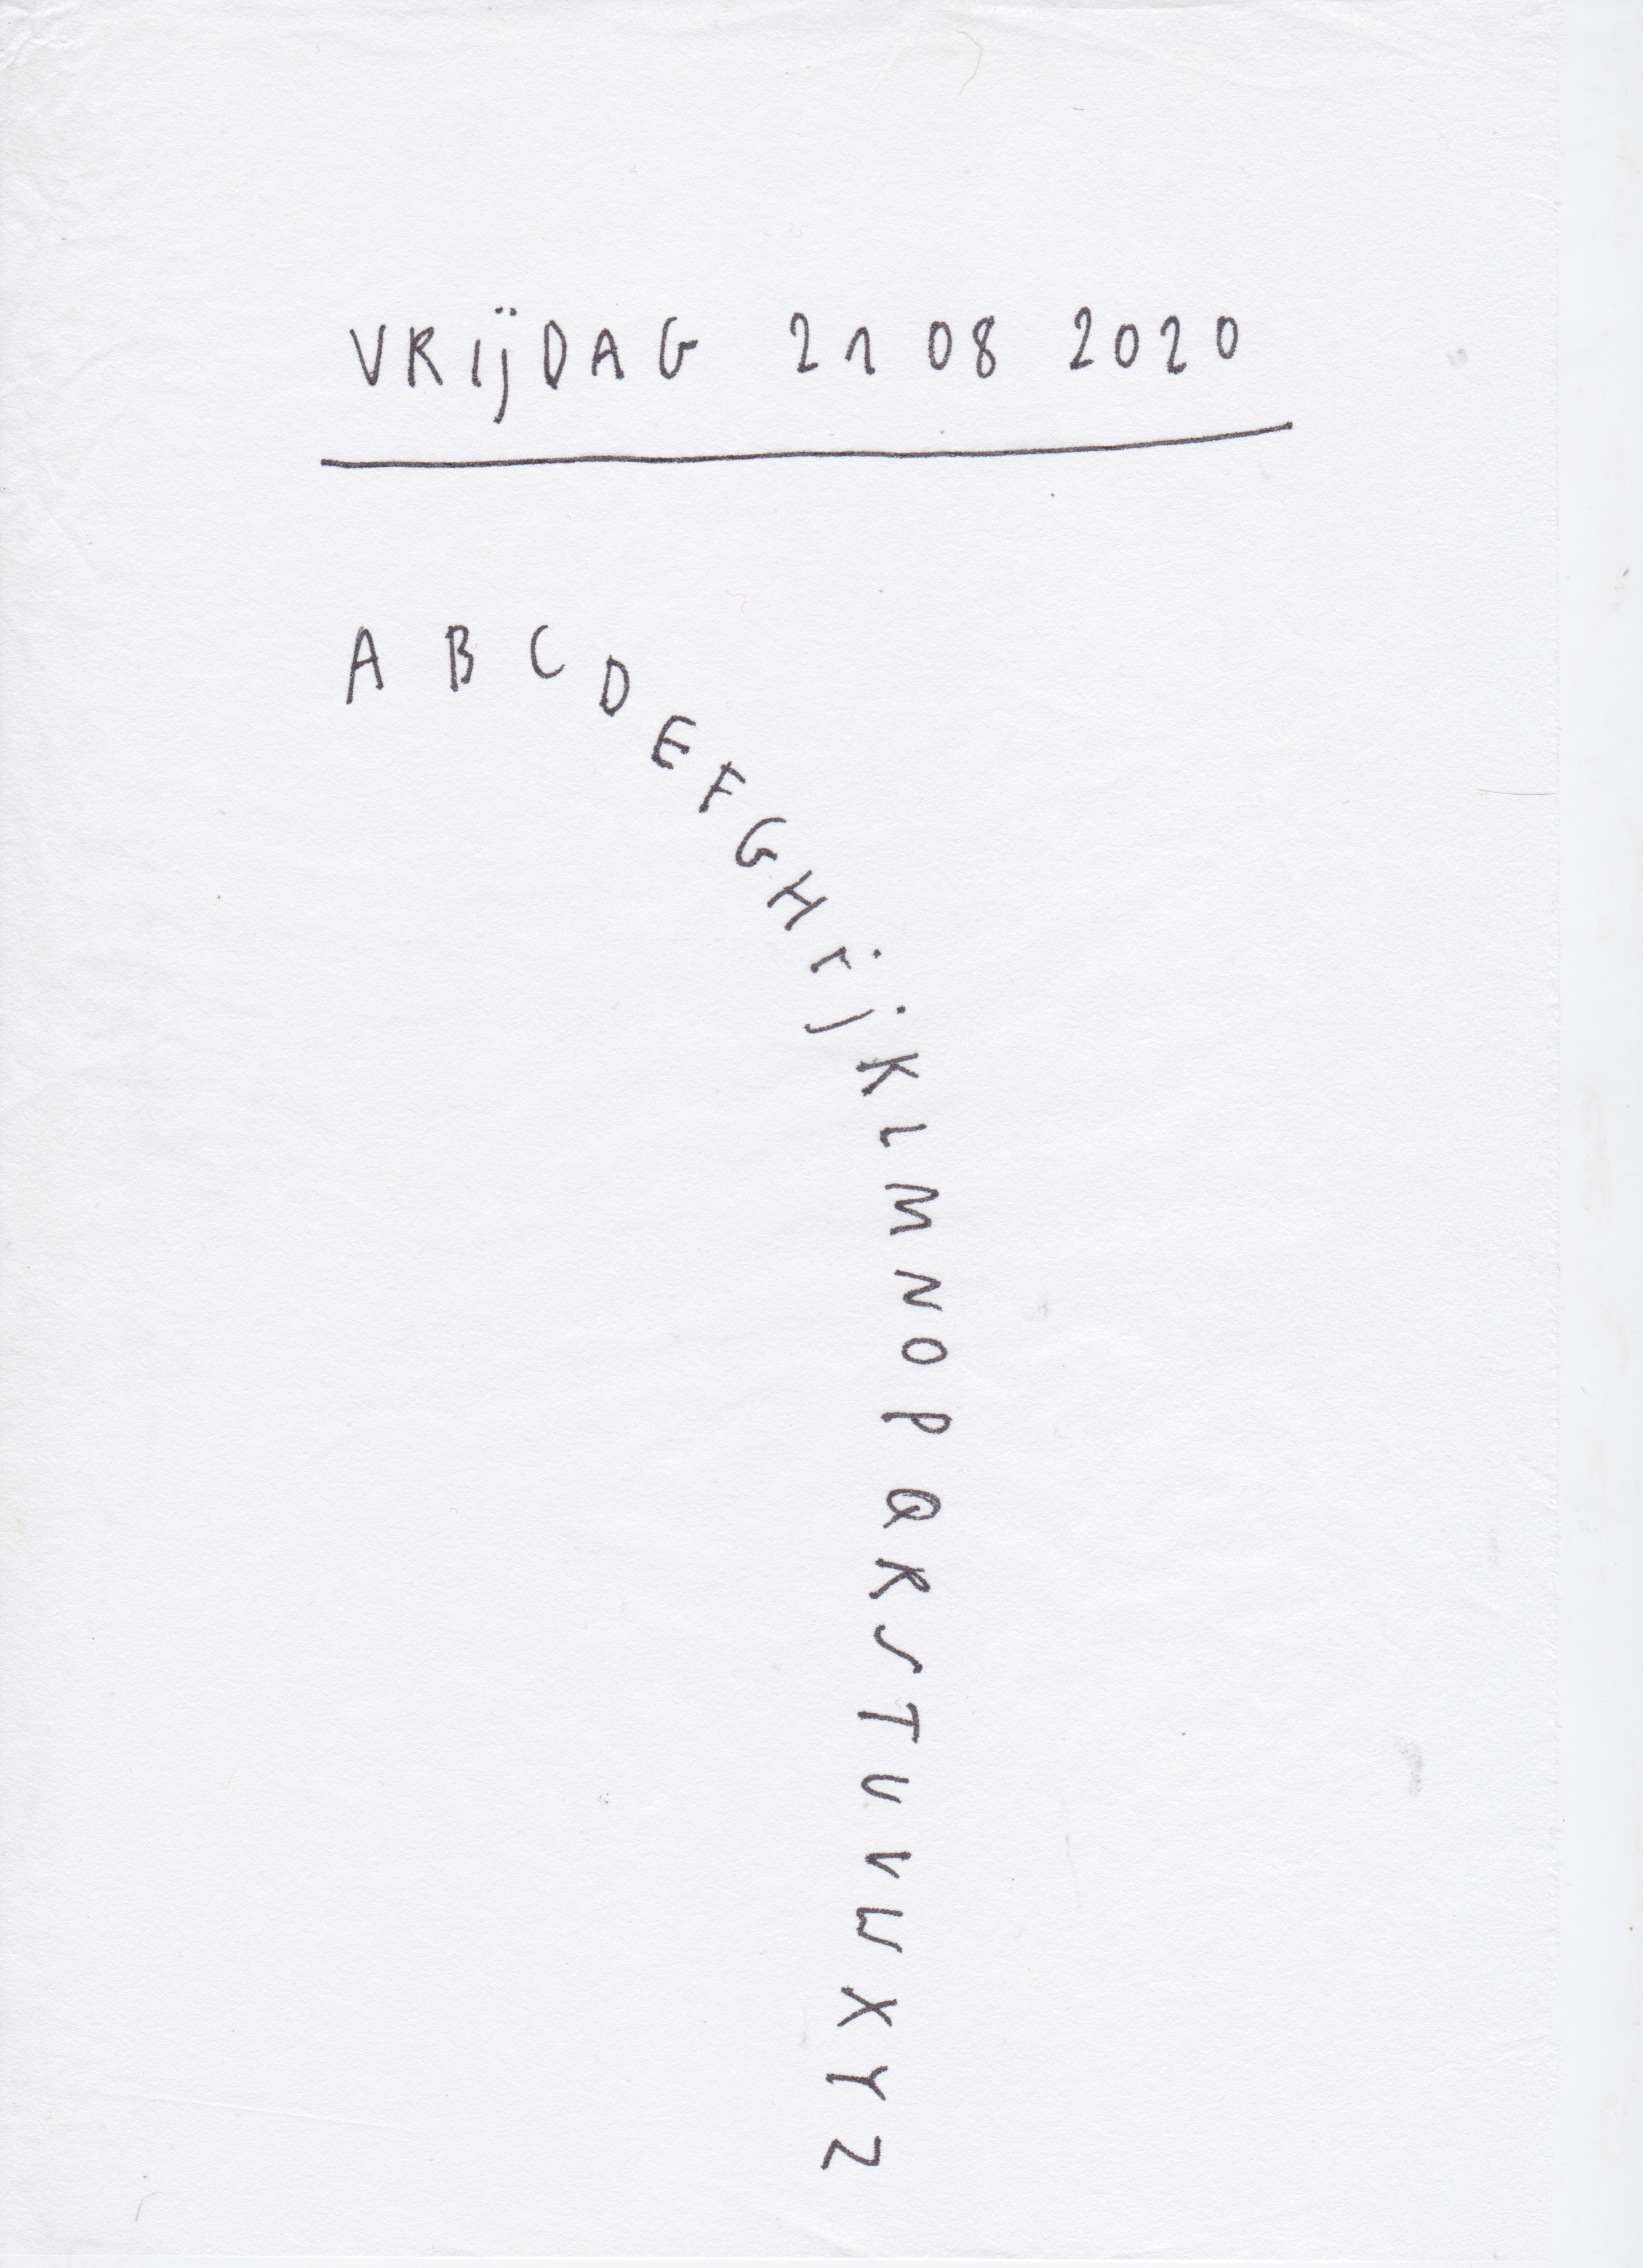 VRijDAG 21 08 2020
A B C D E F G H i j K L M N O P Q R S T U V W X Y Z